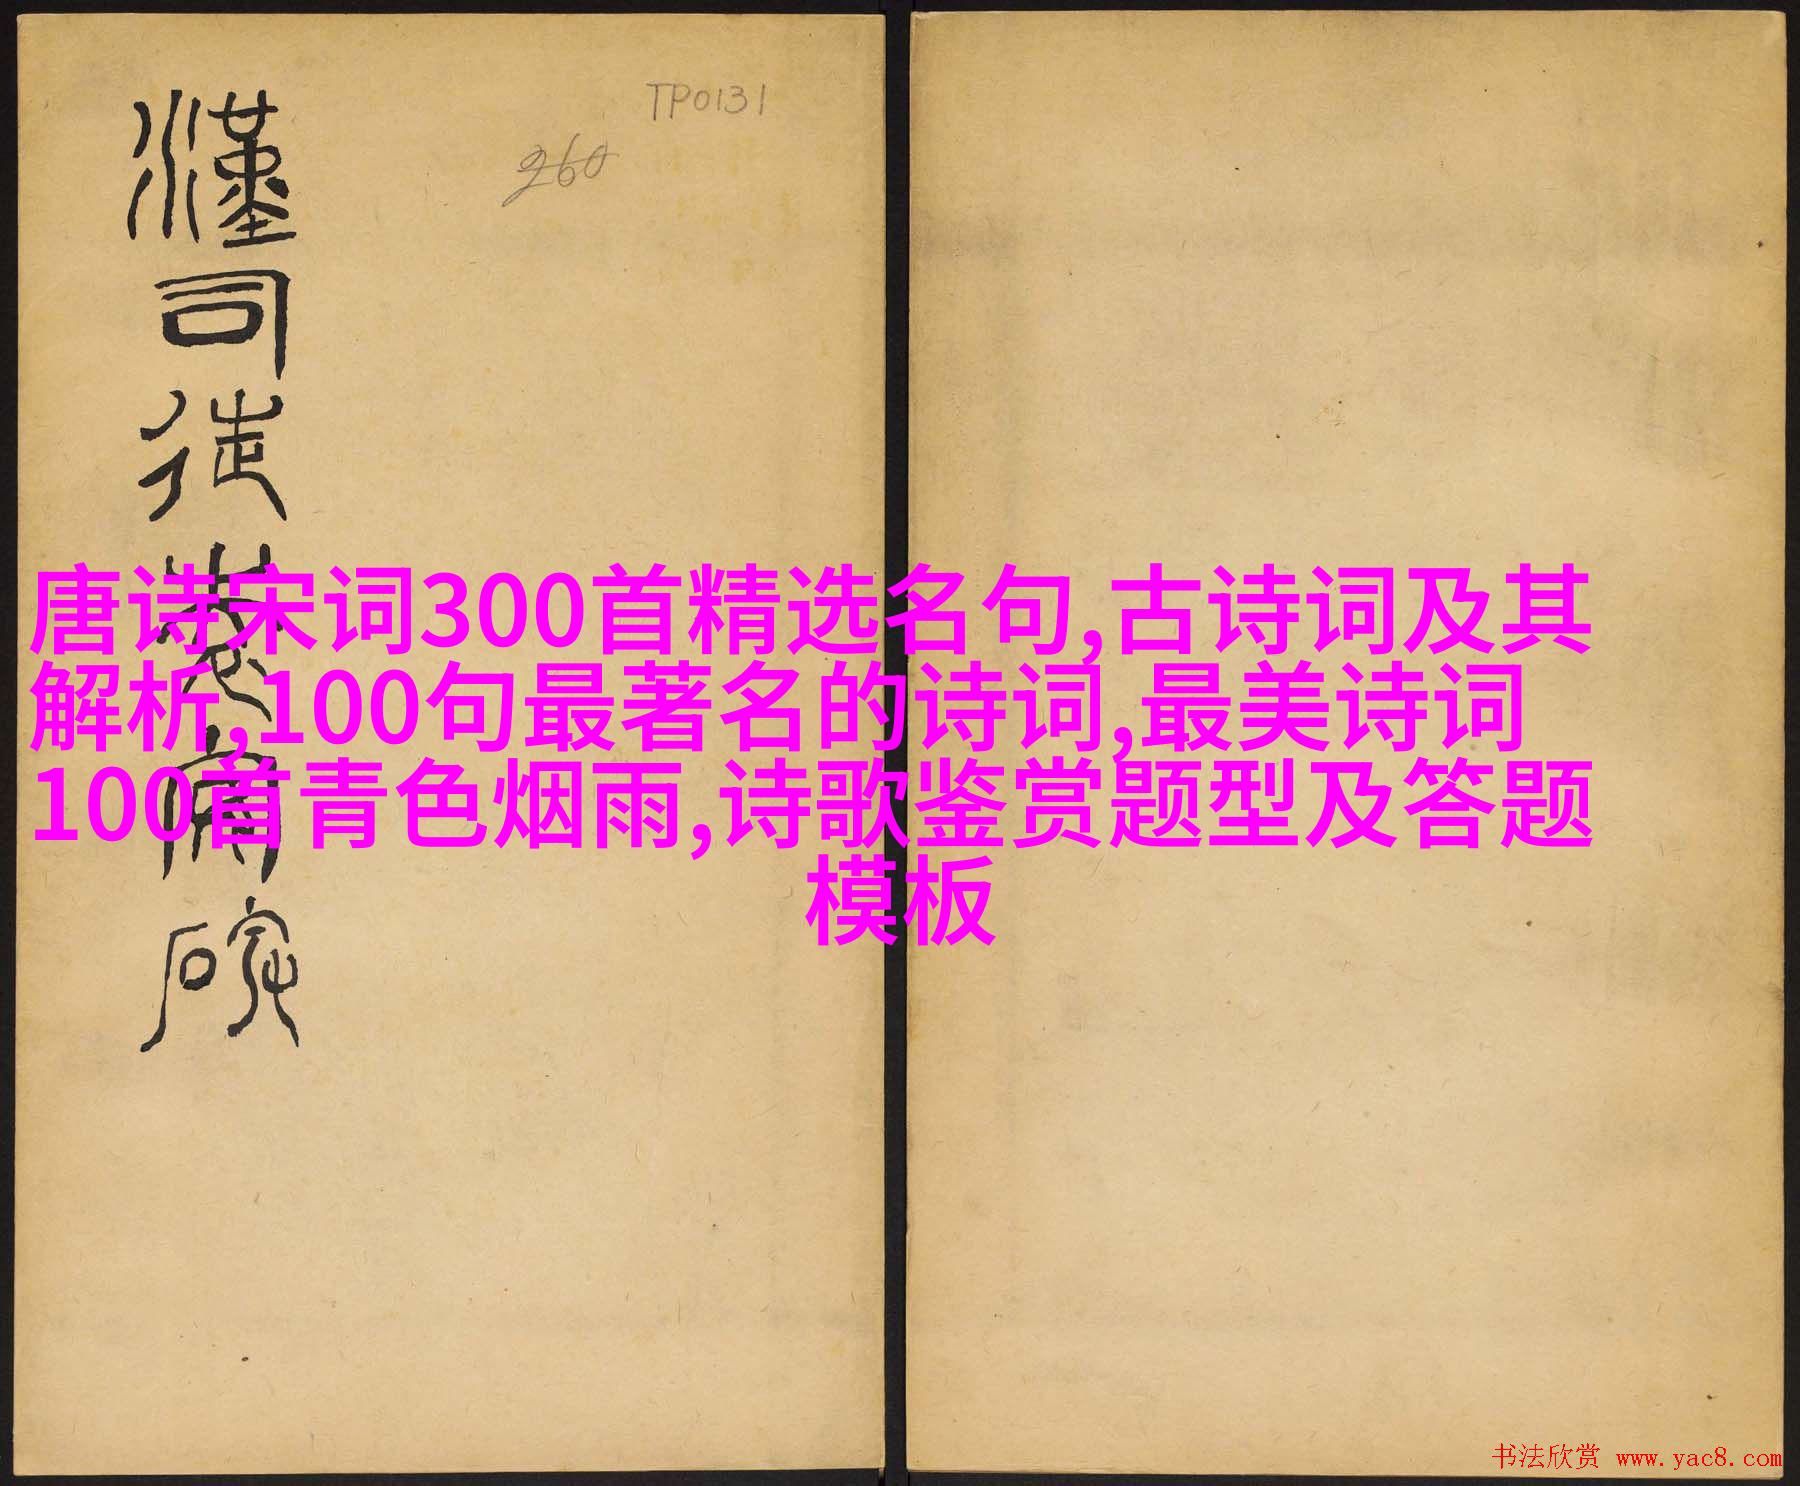 TP0131
260
漢司徒
唐诗宋词300首精选名句,古诗词及其
解析,100句最著名的诗词,最美诗词
100首青色烟雨,诗歌鉴赏题型及答题
模板
书法欣赏 www.yac8.com